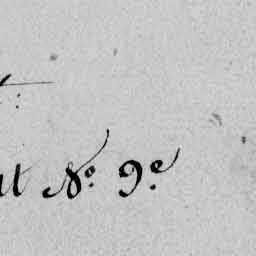 Nº. 9.e